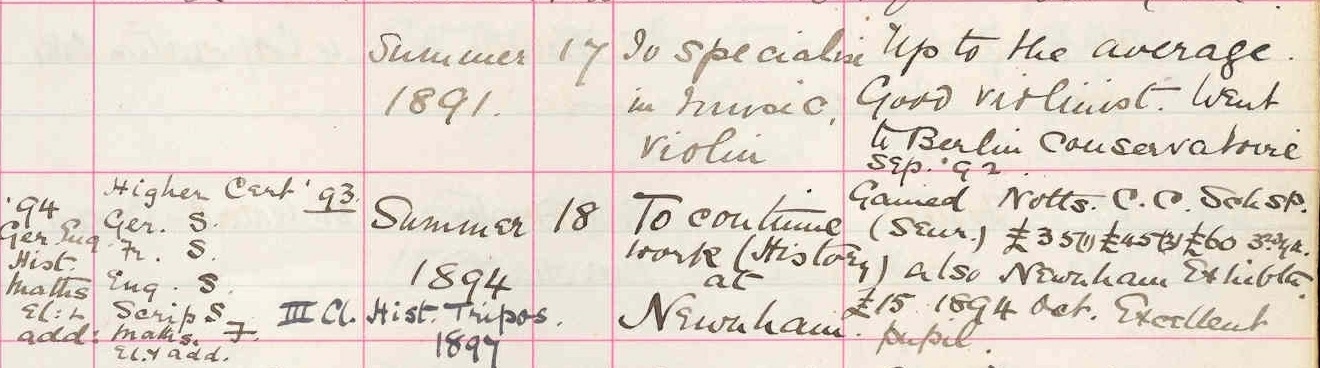 Summer 17 To specialise Up to the average.
1891. in music, Good violinist. Went
violin to Berlin Conservatoire
Sep. '92.
'94 Higher Cert '93. Gained Notts. C. C. Schsp.
Ger. S. Summer 18 To continue (Senr.)
Ger Eng Fr. S. work (History) £35(1) £45(2) £60 3rd yr.
Hist. Eng. S. 1894 at also Newnham Exhibtn.
Maths Scrip S. III Cl. Hist. Tripos. Newnham. £15 1894 Oct. Excellent
El: & Maths. F. 1897 pupil.
add: El. & add.